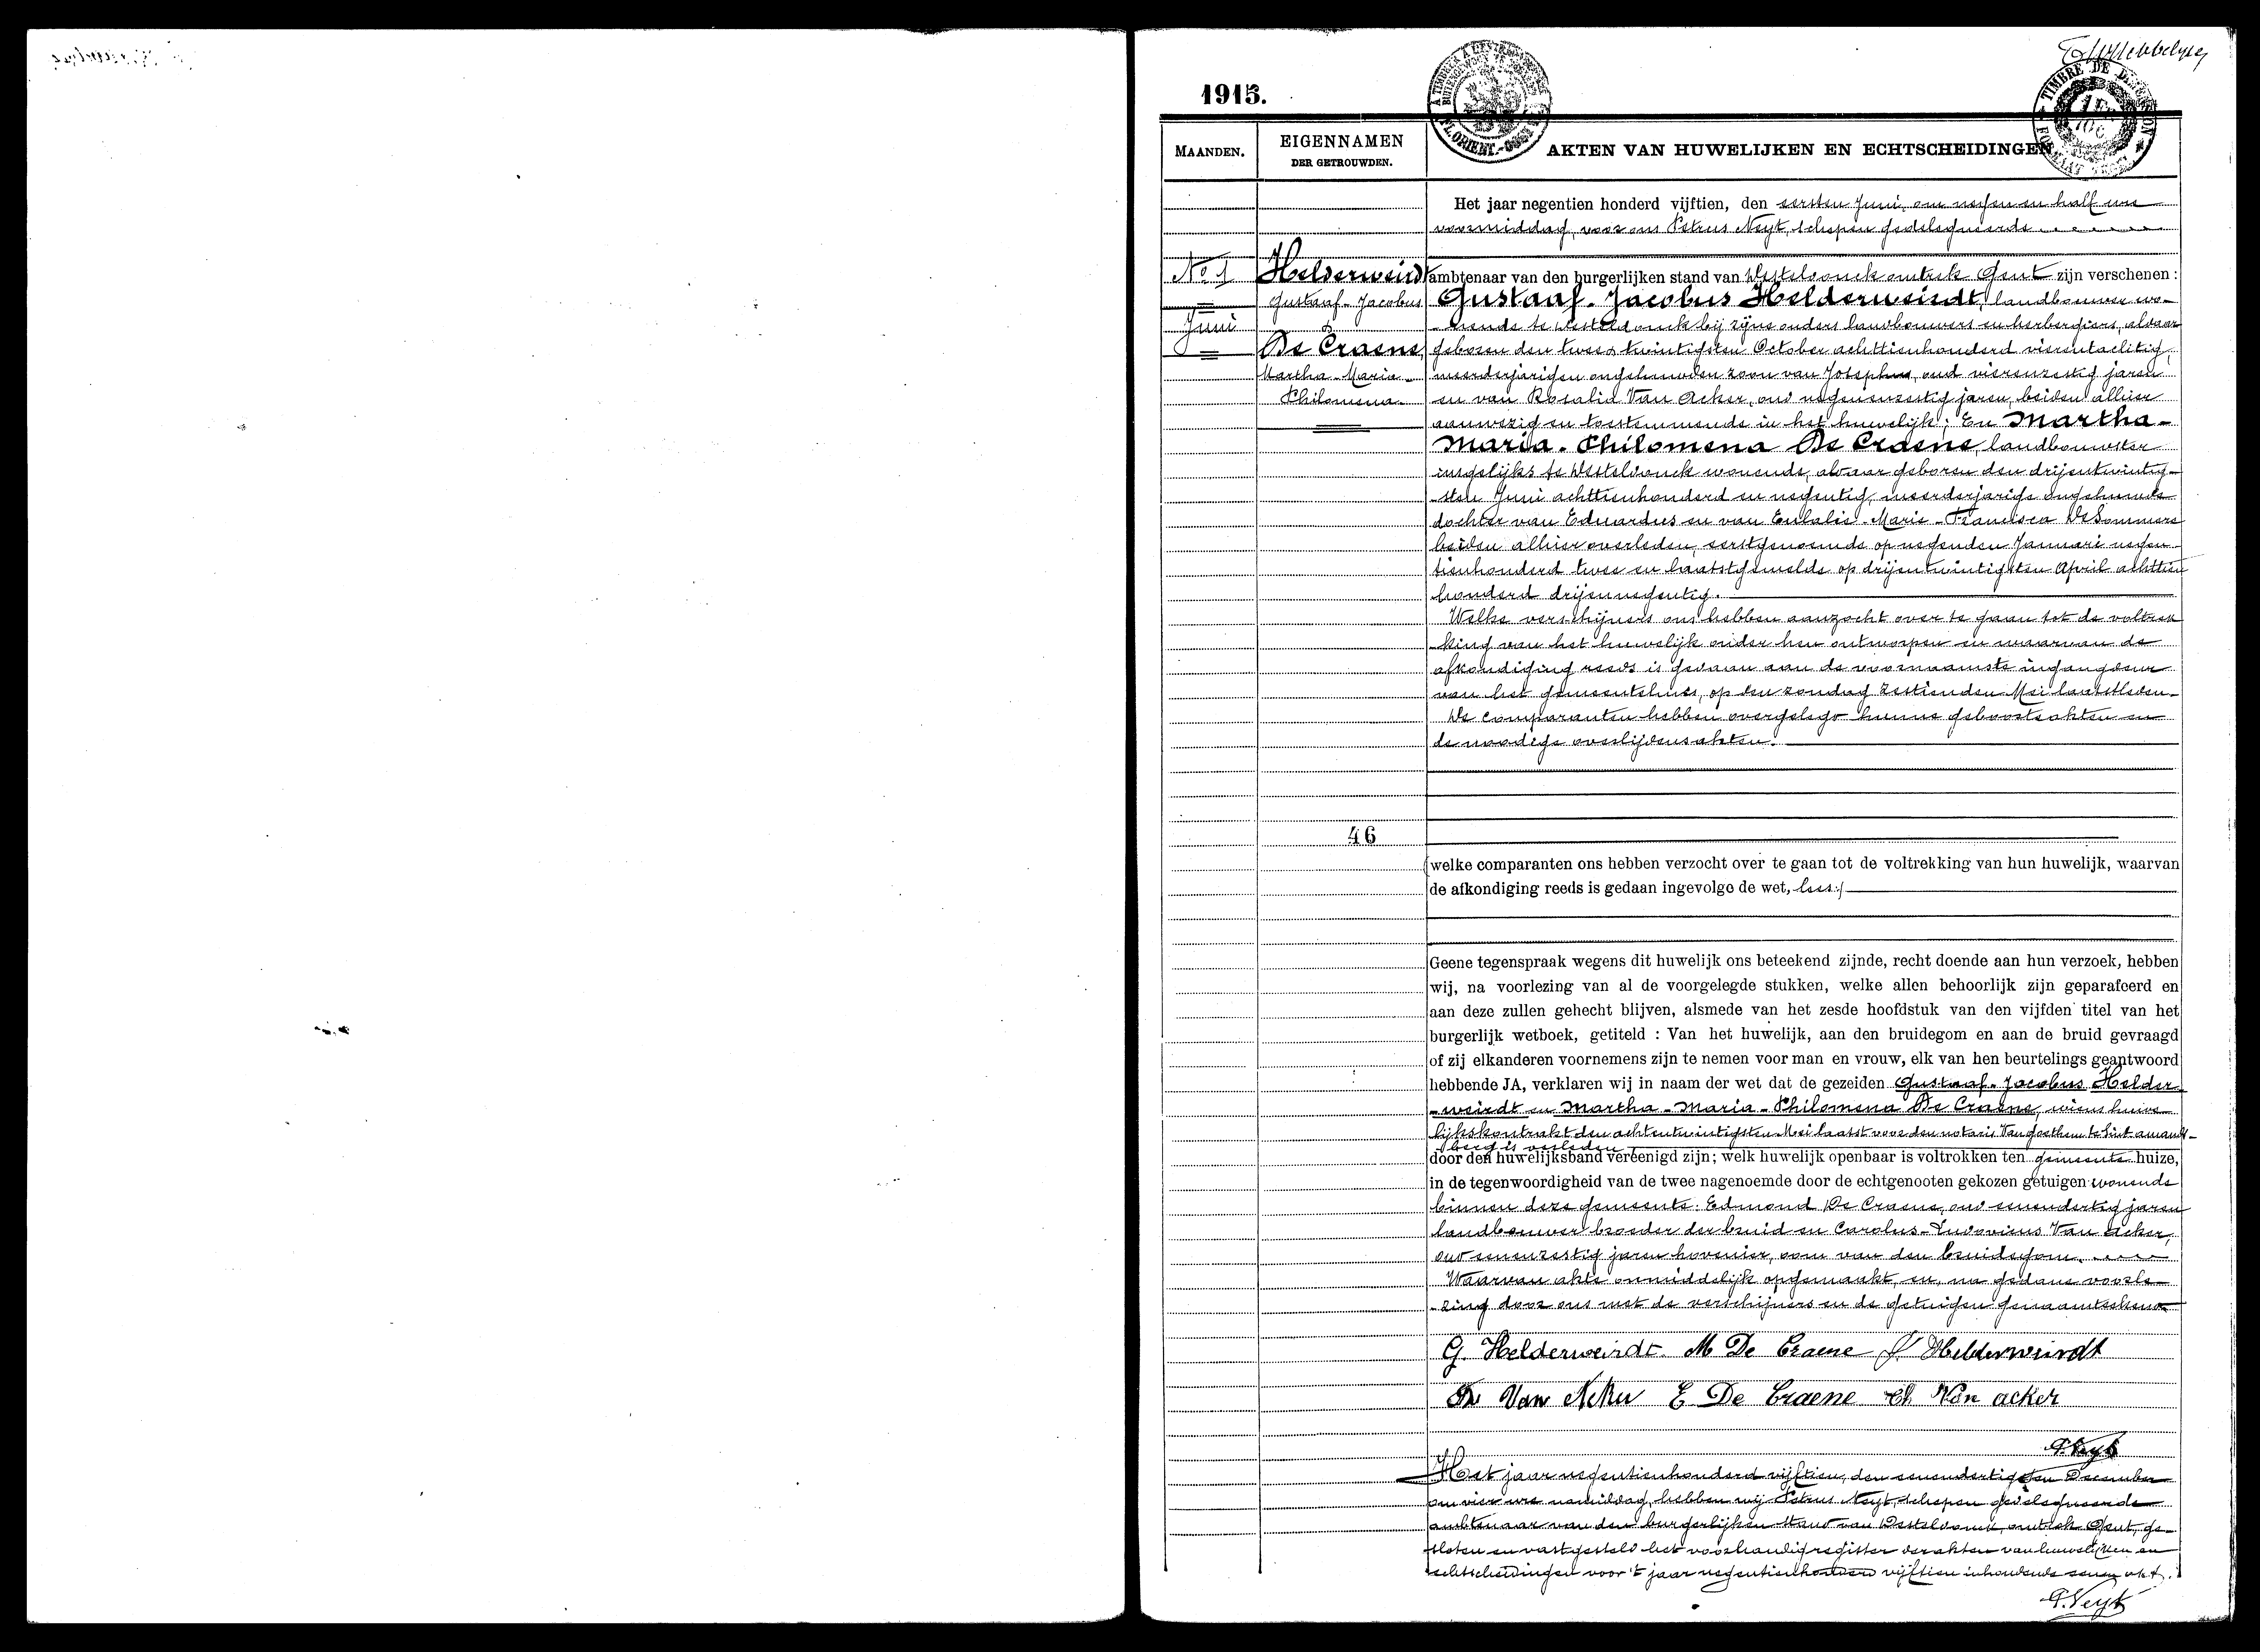 1915.
MAANDEN.
EIGENNAMEN
DER GETROUWDEN.
AKTEN VAN HUWELIJKEN EN ECHTSCHEIDINGEN
TIMBRE DE DIMENSION
No 1
Juni
Helderweirdt
Gustaaf-Jacobus
&
De Craene
Martha-Maria-
Philomena
46
Het jaar negentien honderd vijftien, den eersten Juni, om negen en half ure
voormiddag, voor ons Petrus Neyt, schepen gedelegueerde
ambtenaar van den burgerlijken stand van Desteldonck omtrek Gent zijn verschenen :
Gustaaf-Jacobus Helderweirdt, landbouwer wo-
-nende te Desteldonck bij zijne ouders landbouwers en herbergiers, alwaar
geboren den twee & twintigsten October achttienhonderd vierentachtig,
meerderjarigen ongehuwden zoon van Joseph, oud vierenzestig jaren
en van Rosalia Van Acker, oud negenenzestig jaren, beiden alhier
aanwezig en toestemmende in het huwelijk; En Martha-
Maria-Philomena De Craene, landbouwster
insgelijks te Desteldonck wonende, alwaar geboren den drijentwintig-
-sten Juni achttienhonderd en negentig, meerderjarige ongehuwde
dochter van Eduardus en van Eulalie-Marie-Francisca De Sommere
beiden alhier overleden, eerstgenoemde op negenden Januari negen-
tienhonderd twee en laatstgemelde op drijentwintigsten April achttien
honderd drijennegentig.
Welke verschijners ons hebben aanzocht over te gaan tot de voltrek
king van het huwelijk onder hen ontworpen en waarvan de
afkondiging reeds is gedaan aan de voornaamste ingangdeur
van het gemeentehuis, op den zondag zestienden Mei laatstleden.
De comparanten hebben overgelegd hunne geboorteakten en
de noodige overlijdensakten.
(welke comparanten ons hebben verzocht over te gaan tot de voltrekking van hun huwelijk, waarvan
de afkondiging reeds is gedaan ingevolge de wet,
Geene tegenspraak wegens dit huwelijk ons beteekend zijnde, recht doende aan hun verzoek, hebben
wij, na voorlezing van al de voorgelegde stukken, welke allen behoorlijk zijn geparafeerd en
aan deze zullen gehecht blijven, alsmede van het zesde hoofdstuk van den vijfden titel van het
burgerlijk wetboek, getiteld : Van het huwelijk, aan den bruidegom en aan de bruid gevraagd
of zij elkanderen voornemens zijn te nemen voor man en vrouw, elk van hen beurtelings geantwoord
hebbende JA, verklaren wij in naam der wet dat de gezeiden Gustaaf-Jacobus Helder-
-weirdt en Martha-Maria-Philomena De Craene, wiens huwe-
lijkskontrakt den achtentwintigsten Mei laatst voor den notaris Van Goethem te Sint amands-
berg is verleden
door den huwelijksband vereenigd zijn; welk huwelijk openbaar is voltrokken ten gemeente huize,
in de tegenwoordigheid van de twee nagenoemde door de echtgenooten gekozen getuigen wonende
binnen deze gemeente: Edmond De Craene, oud eenendertig jaren
landbouwer broeder der bruid en Carolus-Ludovicus Van Acker,
oud eenenzestig jaren hovenier, oom van den bruidegom.
Waarvan akte onmiddelijk opgemaakt, en, na gedane voorle-
-zing door ons met de verschijners en de getuigen genaamteekend
G. Helderweirdt M De Craene J. Helderweirdt
Van Acker E De Craene Ch Van acker
P. Neyt
Het jaar negentienhonderd vijftien, den eenendertigsten December
om vier ure namiddag, hebben wij Petrus Neyt, schepen gedelegueerde
ambtenaar van den burgerlijken stand van Desteldonck, omtrek Gent, ge-
sloten en vastgesteld het voorhandig register der akten van huwelijken en
echtscheidingen voor 't jaar negentienhonderd vijftien inhoudende eenen akt.
P. Neyt